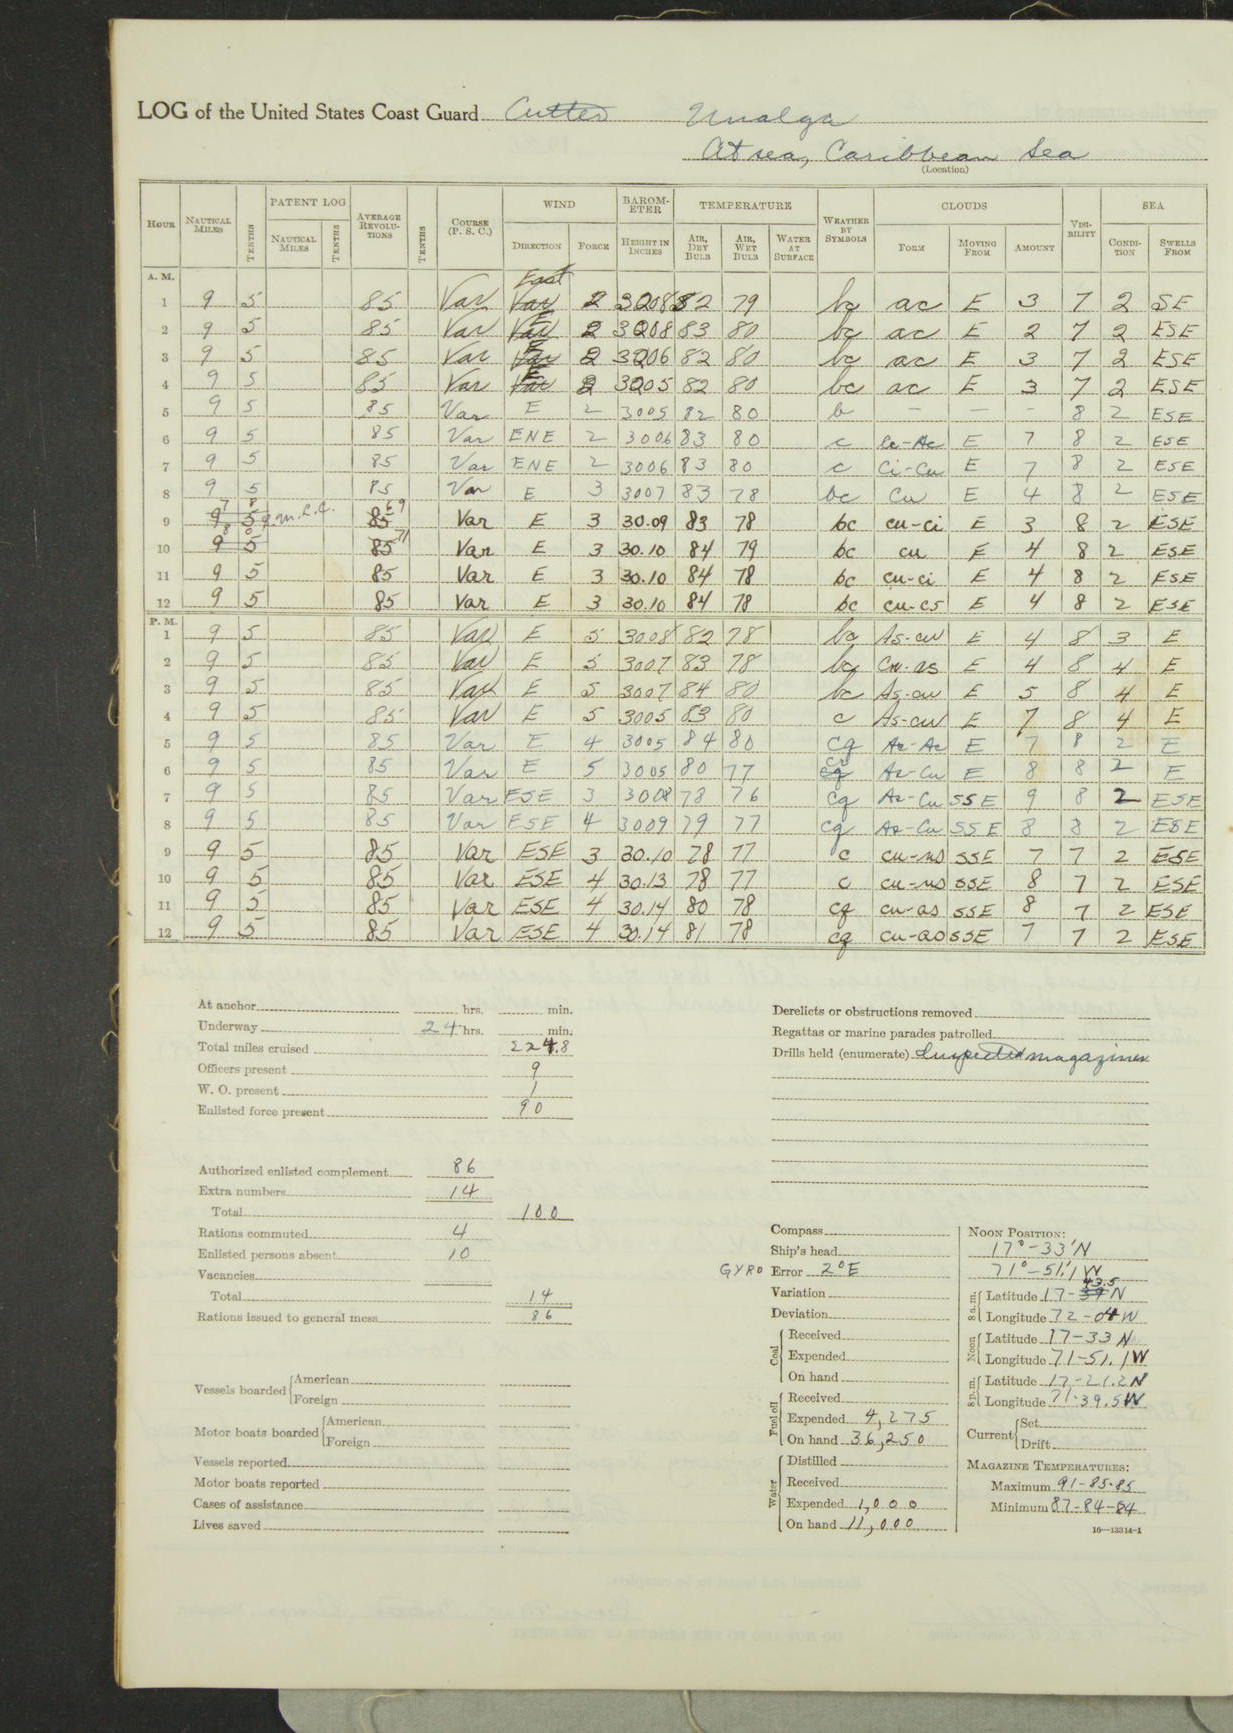 LOG of the United States Coast Guard Cutter Unalga
At sea, Caribbean Sea
(Location)
HOUR NAUTICAL MILES TENTHS PATENT LOG NAUTICAL MILES TENTHS AVERAGE REVOLUTIONS TENTHS COURSE (P. S. C.) WIND DIRECTION FORCE BAROMETER HEIGHT IN INCHES TEMPERATURE AIR, DRY BULB AIR, WET BULB WATER AT SURFACE WEATHER BY SYMBOLS CLOUDS FORM MOVING FROM AMOUNT VISIBILITY SEA CONDITION SWELLS FROM
A. M.
1 9 5 85 Var East 2 3008 82 79 bc ac E 3 7 2 SE
2 9 5 85 Var E 2 3008 83 80 bc ac E 2 7 2 ESE
3 9 5 85 Var E 2 3006 82 80 bc ac E 3 7 2 ESE
4 9 5 85 Var E 2 3005 82 80 bc ac E 3 7 2 ESE
5 9 5 85 Var E 2 3005 82 80 b — — - 8 2 ESE
6 9 5 85 Var ENE 2 3006 83 80 c Ac E 7 8 2 ESE
7 9 5 85 Var ENE 2 3006 83 80 c Ci-Cu E 7 8 2 ESE
8 9 5 85 Var E 3 3007 83 78 bc Cu E 4 8 2 ESE
9 7 8 69 Var E 3 30.09 83 78 bc cu-ci E 3 8 2 ESE
10 8 0 71 Var E 3 30.10 84 79 bc cu E 4 8 2 ESE
11 9 5 85 Var E 3 30.10 84 78 bc cu-ci E 4 8 2 ESE
12 9 5 85 Var E 3 30.10 84 78 bc cu-cs E 4 8 2 ESE
P. M.
1 9 5 85 Var E 5 3008 82 78 bc As-cu E 4 8 3 E
2 9 5 85 Var E 5 3007 83 78 bc Cu-as E 4 8 4 E
3 9 5 85 Var E 5 3007 84 80 bc As-cu E 5 8 4 E
4 9 5 85 Var E 5 3005 83 80 c As-cu E 7 8 4 E
5 9 5 85 Var E 4 3005 84 80 cq E 7 8 2 E
6 9 5 85 Var E 5 3005 80 77 Cu E 8 8 2 E
7 9 5 85 Var ESE 3 3008 78 76 cq Cu SSE 9 8 2 ESE
8 9 5 85 Var ESE 4 3009 79 77 cq Cu SSE 8 8 2 ESE
9 9 5 85 Var ESE 3 30.10 78 77 c cu-ns SSE 7 7 2 ESE
10 9 5 85 Var ESE 4 30.13 78 77 c cu-ns SSE 8 7 2 ESE
11 9 5 85 Var ESE 4 30.14 80 78 cq cu-as SSE 8 7 2 ESE
12 9 5 85 Var ESE 4 30.14 81 78 cq cu-as SSE 7 7 2 ESE
At anchor hrs. min.
Underway 24 hrs. min.
Total miles cruised 224.8
Officers present 9
W. O. present 1
Enlisted force present 90
Authorized enlisted complement 86
Extra numbers 14
Total 100
Rations commuted 4
Enlisted persons absent 10
Vacancies
Total 14
Rations issued to general mess 86
Vessels boarded American
Foreign
Motor boats boarded American
Foreign
Vessels reported
Motor boats reported
Cases of assistance
Lives saved
Derelicts or obstructions removed
Regattas or marine parades patrolled
Drills held (enumerate) Inspected magazines
Compass
Ship's head
GYRO Error 2°E
Variation
Deviation
Coal Received
Expended
On hand
Fuel oil Received
Expended 4,275
On hand 36,250
Water Distilled
Received
Expended 1,000
On hand 11,000
NOON POSITION:
17°-33'N
71°-51.'1 W
8 a.m. Latitude 17-43.5 N
Longitude 72-04 W
Noon Latitude 17-33 N
Longitude 71-51.1 W
8 p.m. Latitude 17-21.2 N
Longitude 71-39.5 W
Current Set
Drift
MAGAZINE TEMPERATURES:
Maximum 91-85-85
Minimum 87-84-84
16—13314-1